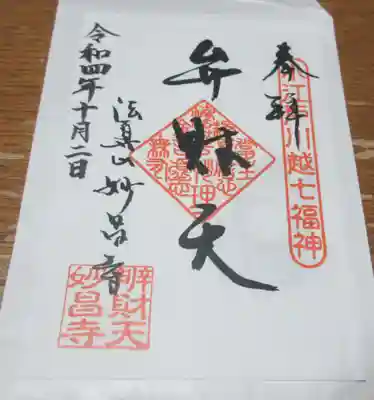 奉拝
川越七福神
弁財天
法真山妙昌寺
令和四年十月二日
辨財天
妙昌寺